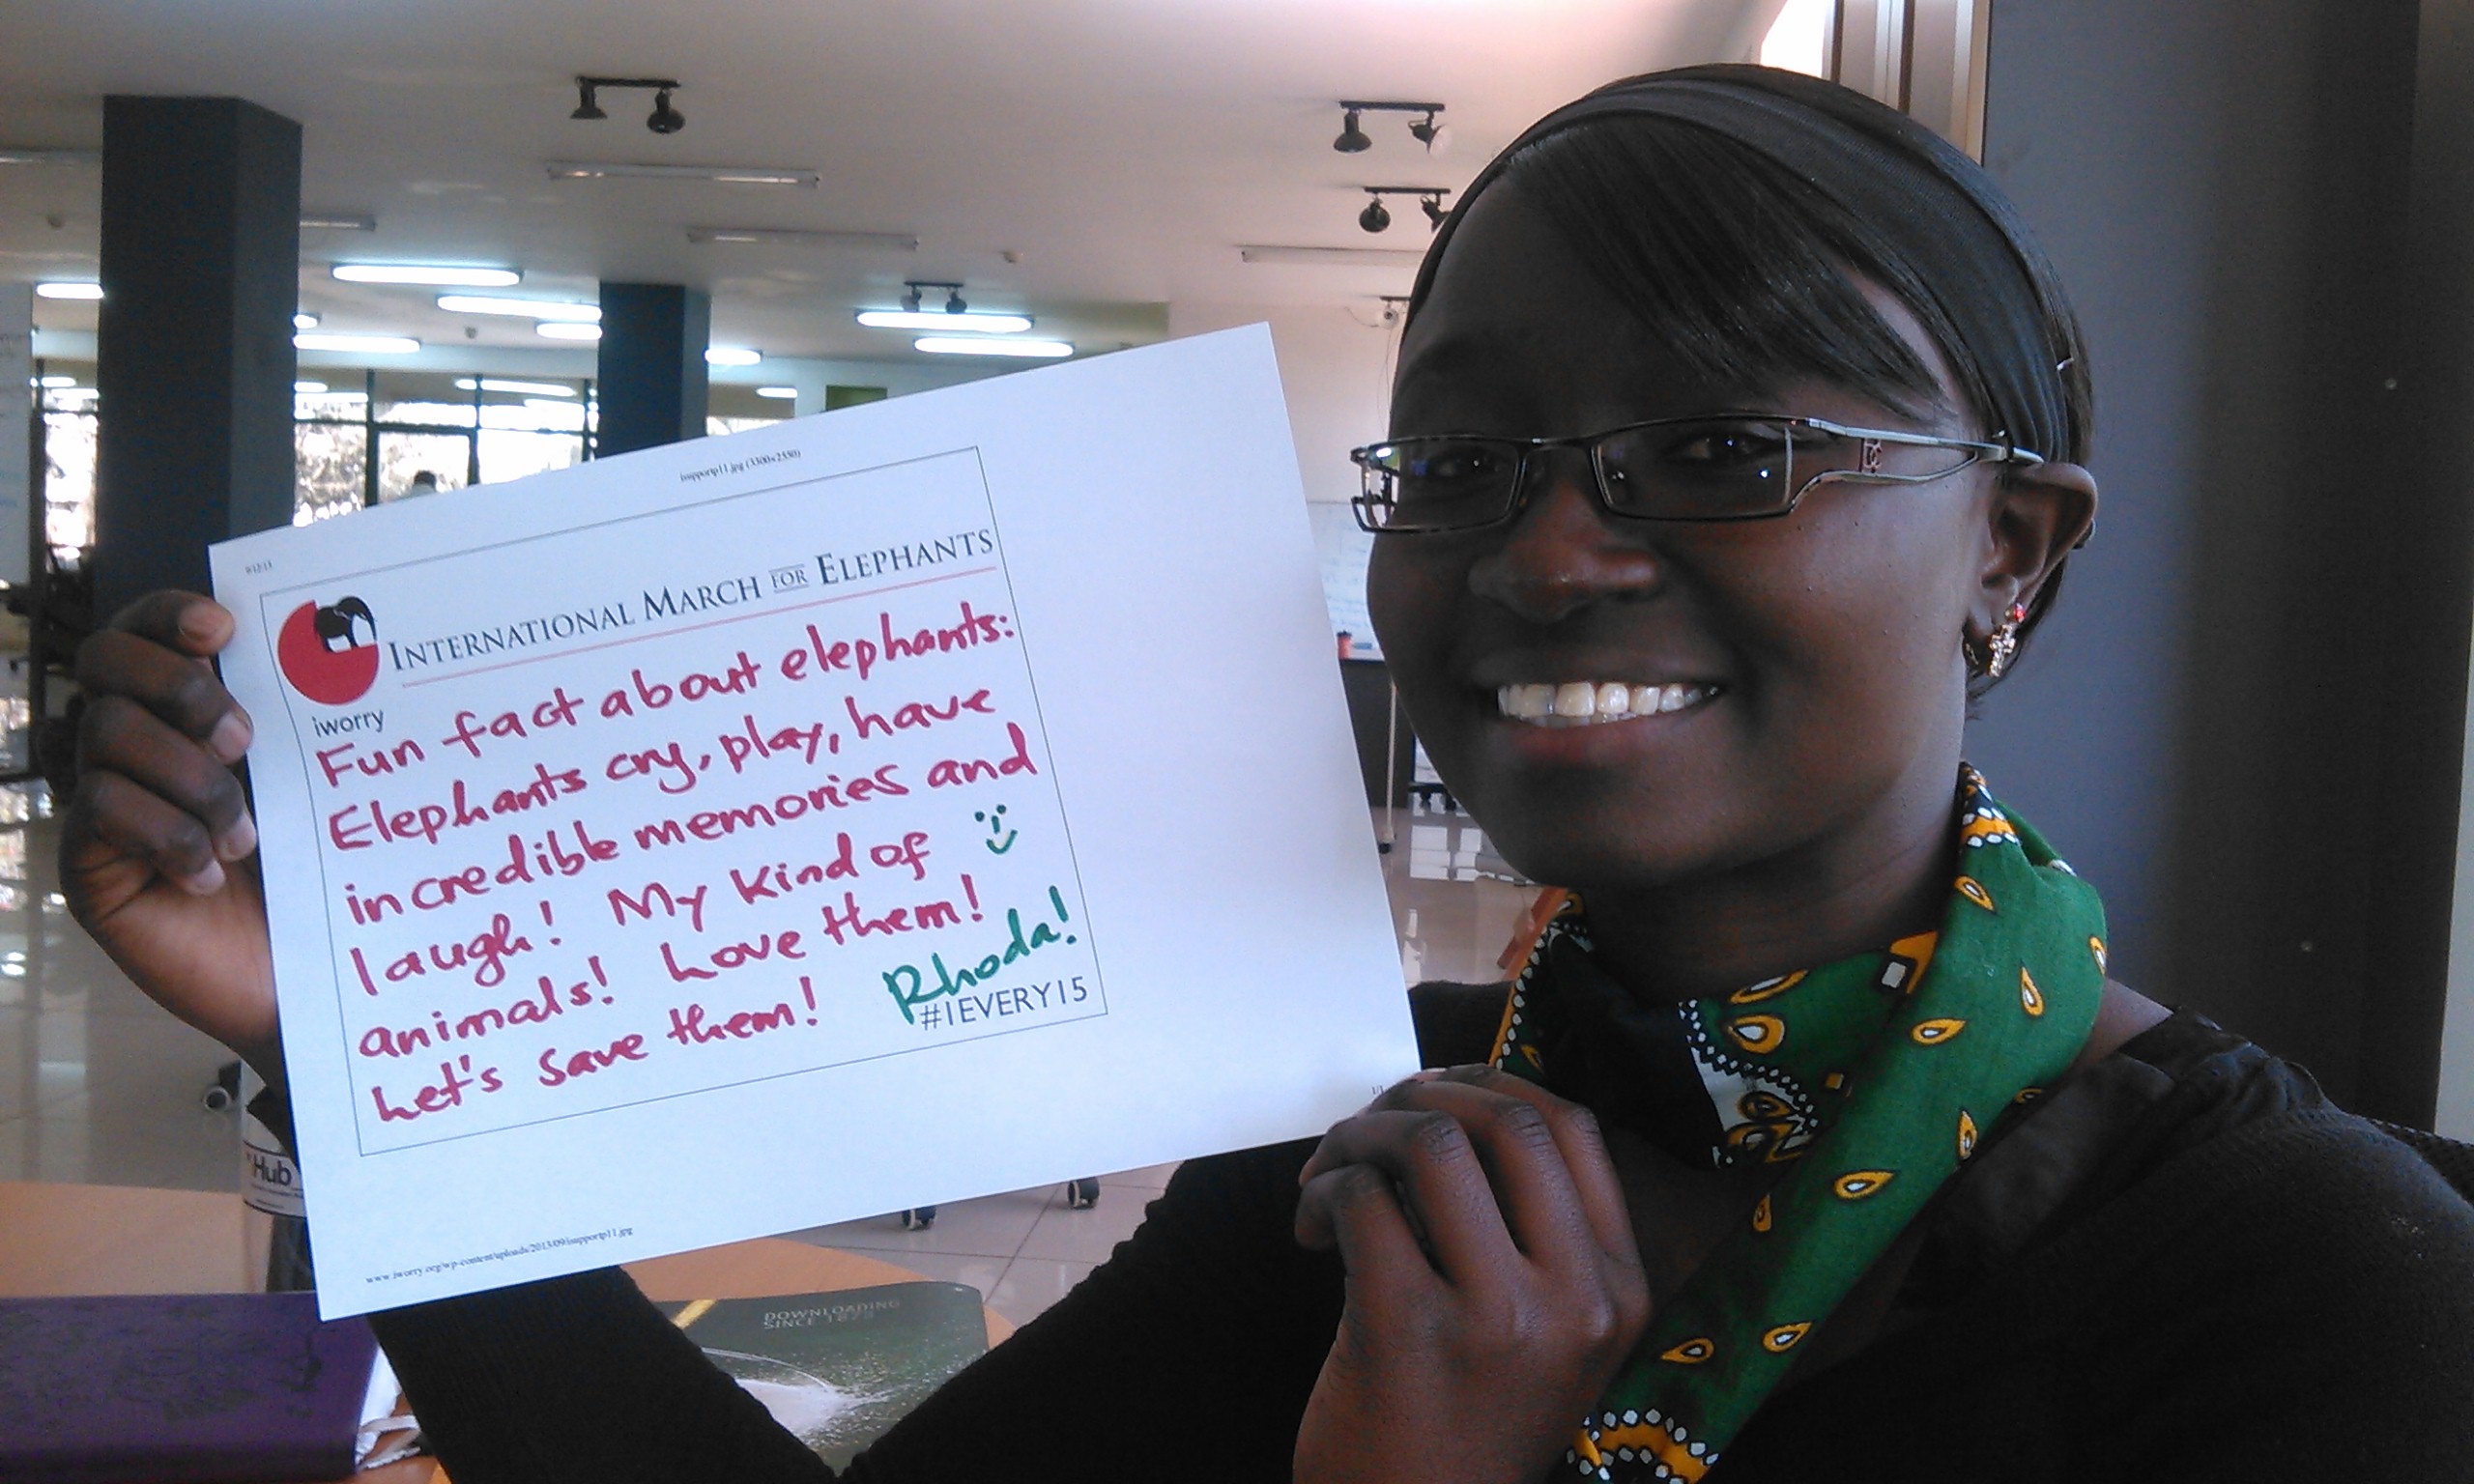 isupportp11.jpg (3300×2550)
9/12/13
INTERNATIONAL MARCH FOR ELEPHANTS
iworry
Fun fact about elephants:
Elephants cry, play, have
incredible memories and
laugh! My kind of
animals! Love them!
Let's save them!
Rhoda!
#IEVERY15
1/1
www.iworry.org/wp-content/uploads/2013/09/isupportp11.jpg
Hub
DOWNLOADING
SINCE 1873